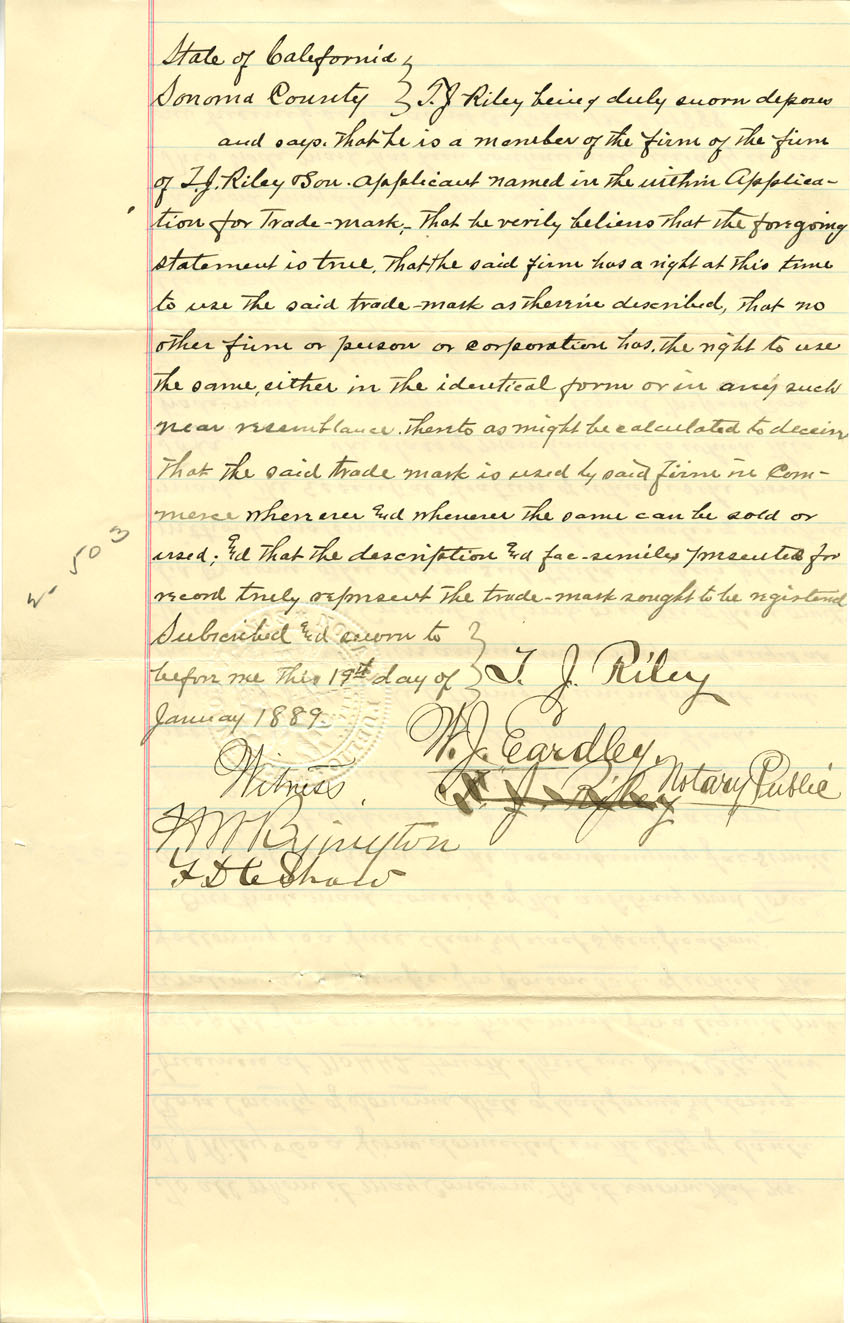 State of California
Sonoma County } T. J. Riley being duly sworn deposes
and says. that he is a member of the firm of the firm
of T. J. Riley & Son. applicant named in the within Applica-
tion for Trade-mark, - that he verily believes that the foregoing
statement is true, that the said firm has a right at this time
to use the said trade-mark as therein described, that no
other firm or person or corporation has, the right to use
the same, either in the identical form or in any such
near resemblance. thereto as might be calculated to deceive
that the said trade mark is used by said firm in Com-
merce wherever &d whenever the same can be sold or
used; &d that the description &d fac-similes presented for
record truly represent the trade-mark sought to be registered
Subscribed &d sworn to
before me this 19th day of } T. J. Riley
January 1889.
W. J. Eardley.
Notary Public
Witness
F D C Shaw
503